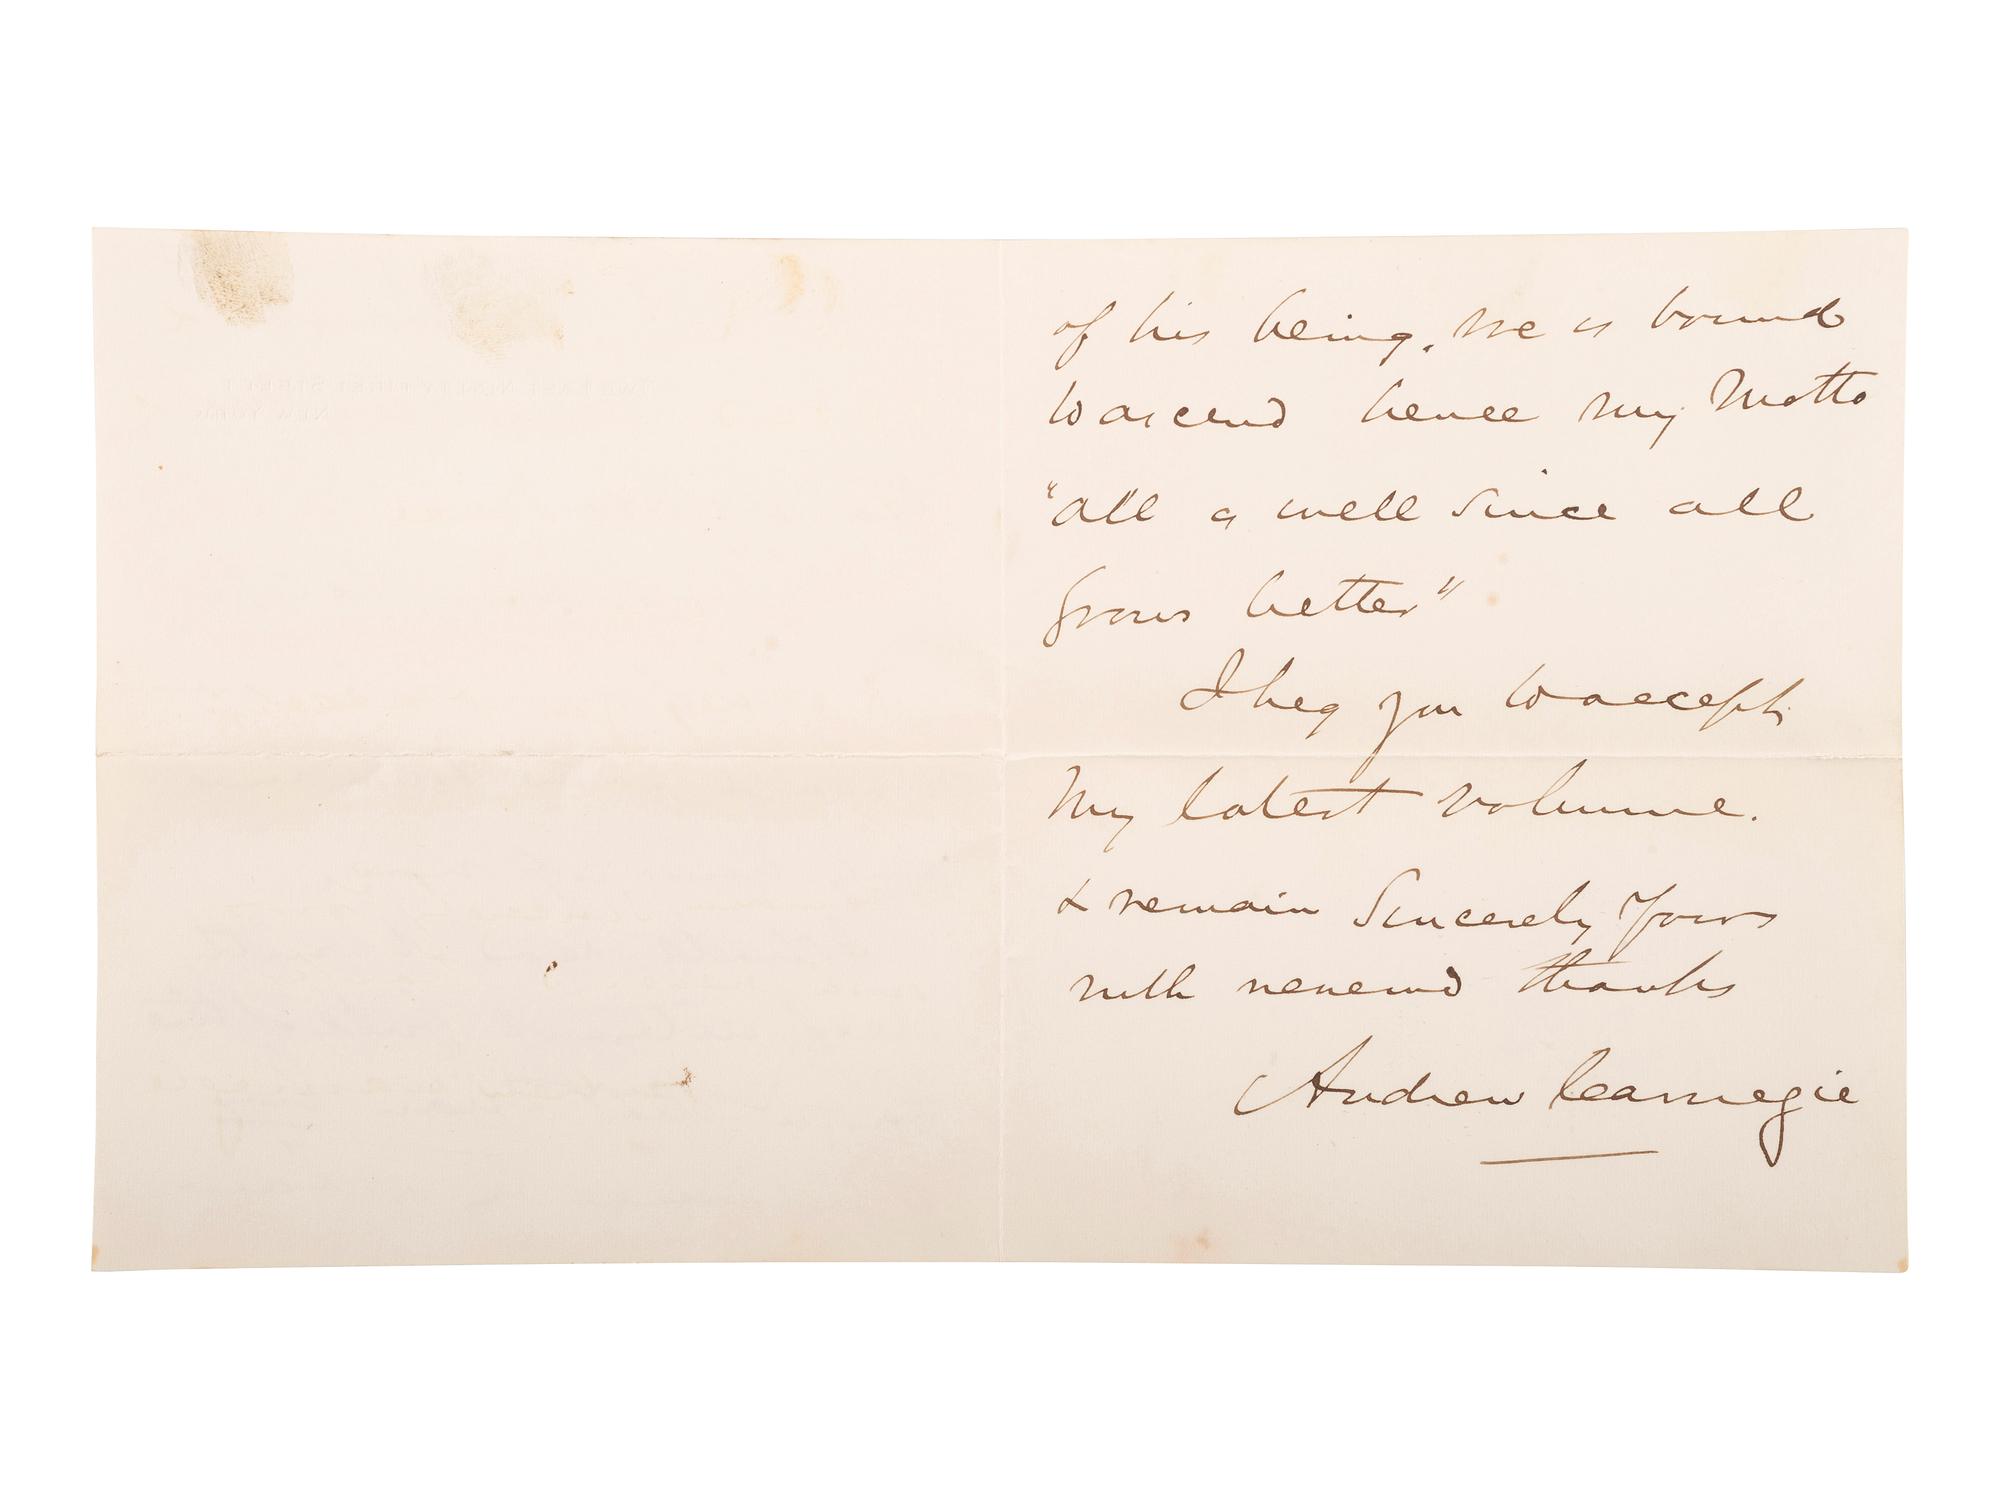 of his being. He is bound
to ascend hence my Motto
"all is well since all
grows better"
I beg you to accept
My latest volume.
& remain Sincerely Yours
with renewed thanks
Andrew Carnegie